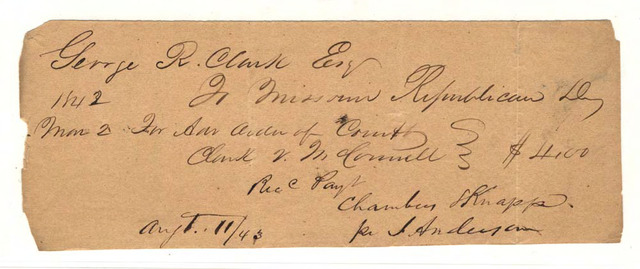 George R. Clark Esq
1842 To Missouri Republican Dr
Mar 2 For Adv Order of Court
Clark v. McConnell } $4.00
Rec Payt
Chambers & Knapp.
Augt. 11/43 pr J. Anderson